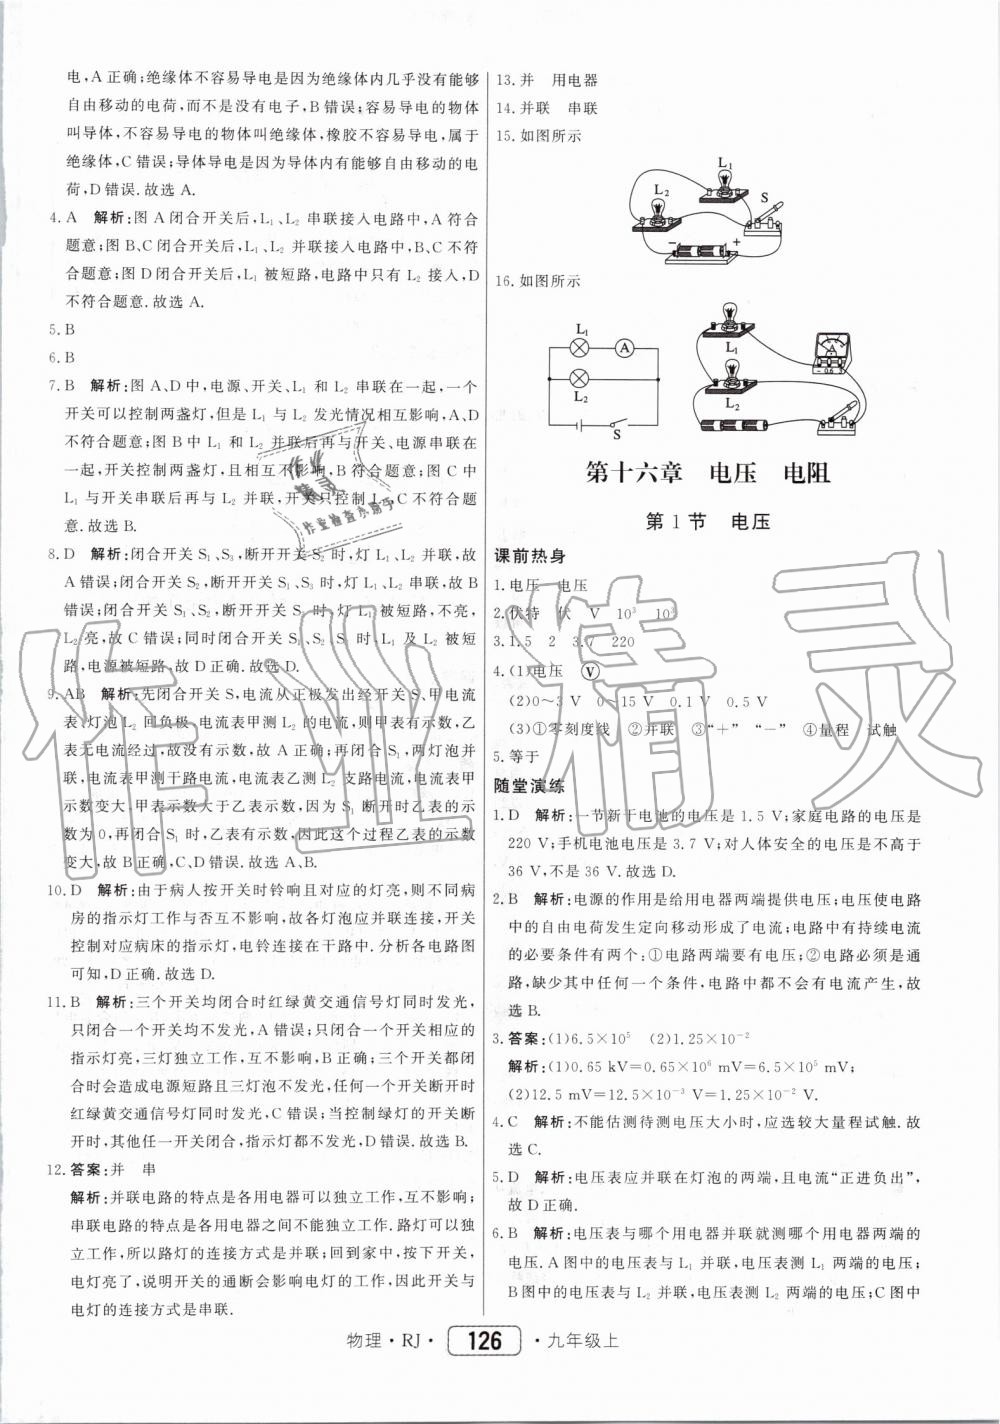 电,A正确;绝缘体不容易导电是因为绝缘体内几乎没有能够
自由移动的电荷,而不是没有电子,B错误;容易导电的物体
叫导体,不容易导电的物体叫绝缘体,橡胶不容易导电,属于
绝缘体,C错误;导体导电是因为导体内有能够自由移动的电
荷,D错误.故选A.
4.A 解析:图A闭合开关后,L₁、L₂串联接入电路中,A符合
题意;图B、C闭合开关后,L₁、L₂并联接入电路中,B、C不符
合题意;图D闭合开关后,L₁被短路,电路中只有L₂接入,D
不符合题意.故选A.
5.B
6.B
7.B 解析:图A、D中,电源、开关、L₁和L₂串联在一起,一个
开关可以控制两盏灯,但是L₁与L₂发光情况相互影响,A、D
不符合题意;图B中L₁和L₂并联后再与开关、电源串联在
一起,开关控制两盏灯,且相互不影响,B符合题意;图C中
L₁与开关串联后再与L₂并联,开关只控制L₁,C不符合题
意.故选B.
8.D 解析:闭合开关S₁、S₃,断开开关S₂时,灯L₁、L₂并联,故
A错误;闭合开关S₂,断开开关S₁、S₃时,灯L₁、L₂串联,故
B错误;闭合开关S₁、S₂,断开开关S₃时,灯L₁被短路,不亮,
L₂亮,故C错误;同时闭合开关S₁、S₂、S₃时,灯L₁及L₂被短
路,电源被短路,故D正确.故选D.
9.AB 解析:先闭合开关S,电流从正极发出经开关S、甲电流
表、灯泡L₂回负极,电流表甲测L₂的电流,则甲表有示数,乙
表无电流经过,故没有示数,故A正确;再闭合S₁,两灯泡并
联,电流表甲测干路电流,电流表乙测L₂支路电流,电流表甲
示数变大,甲表示数大于乙表示数,因为S₁断开时乙表的示
数为0,再闭合S₁时,乙表有示数,因此这个过程乙表的示数
变大,故B正确,C、D错误.故选AB.
10.D 解析:由于病人按开关时铃响且对应的灯亮,则不同病
房的指示灯工作与否互不影响,故各灯泡应并联连接,开关
控制对应病床的指示灯,电铃连接在干路中.分析各电路图
可知,D正确.故选D.
11.B 解析:三个开关均闭合时红绿黄交通信号灯同时发光,
只闭合一个开关均不发光,A错误;只闭合一个开关相应的
指示灯亮,三灯独立工作,互不影响,B正确;三个开关都闭
合时会造成电源短路且三灯泡不发光,任何一个开关断开时
红绿黄交通信号灯同时发光,C错误;当控制绿灯的开关断
开时,其他任一开关闭合,指示灯都不发光,D错误.故选B.
12.答案:并 串
解析:并联电路的特点是各用电器可以独立工作,互不影响;
串联电路的特点是各用电器之间不能独立工作.路灯可以独
立工作,所以路灯的连接方式是并联;回到家中,按下开关,
电灯亮了,说明开关的通断会影响电灯的工作,因此开关与
电灯的连接方式是串联.
13.并 用电器
14.并联 串联
15.如图所示
L₁
L₂
S
− +
16.如图所示
L₁ A
L₂
S
L₁
A
0.6
L₂
第十六章 电压 电阻
第1节 电压
课前热身
1.电压 电压
2.伏特 伏 V 10³ 10³
3.1.5 2 3.7 220
4.(1)电压 Ⓥ
(2)0~3 V 0~15 V 0.1 V 0.5 V
(3)①零刻度线 ②并联 ③“+” “−” ④量程 试触
5.等于
随堂演练
1.D 解析:一节新干电池的电压是1.5 V;家庭电路的电压是
220 V;手机电池电压是3.7 V;对人体安全的电压是不高于
36 V,不是36 V.故选D.
2.B 解析:电源的作用是给用电器两端提供电压;电压使电路
中的自由电荷发生定向移动形成了电流;电路中有持续电流
的必要条件有两个:①电路两端要有电压;②电路必须是通
路,缺少其中任何一个条件,电路中都不会有电流产生,故
选B.
3.答案:(1)6.5×10⁵ (2)1.25×10⁻²
解析:(1)0.65 kV=0.65×10⁶ mV=6.5×10⁵ mV;
(2)12.5 mV=12.5×10⁻³ V=1.25×10⁻² V.
4.C 解析:不能估测待测电压大小时,应选较大量程试触.故
选C.
5.D 解析:电压表应并联在灯泡的两端,且电流“正进负出”,
故D正确.
6.B 解析:电压表与哪个用电器并联就测哪个用电器两端的
电压.A图中的电压表与L₁并联,电压表测L₁两端的电压;
B图中的电压表与L₂并联,电压表测L₂两端的电压;C图中
物理·RJ· 126 ·九年级上
作业精灵
作业
精灵